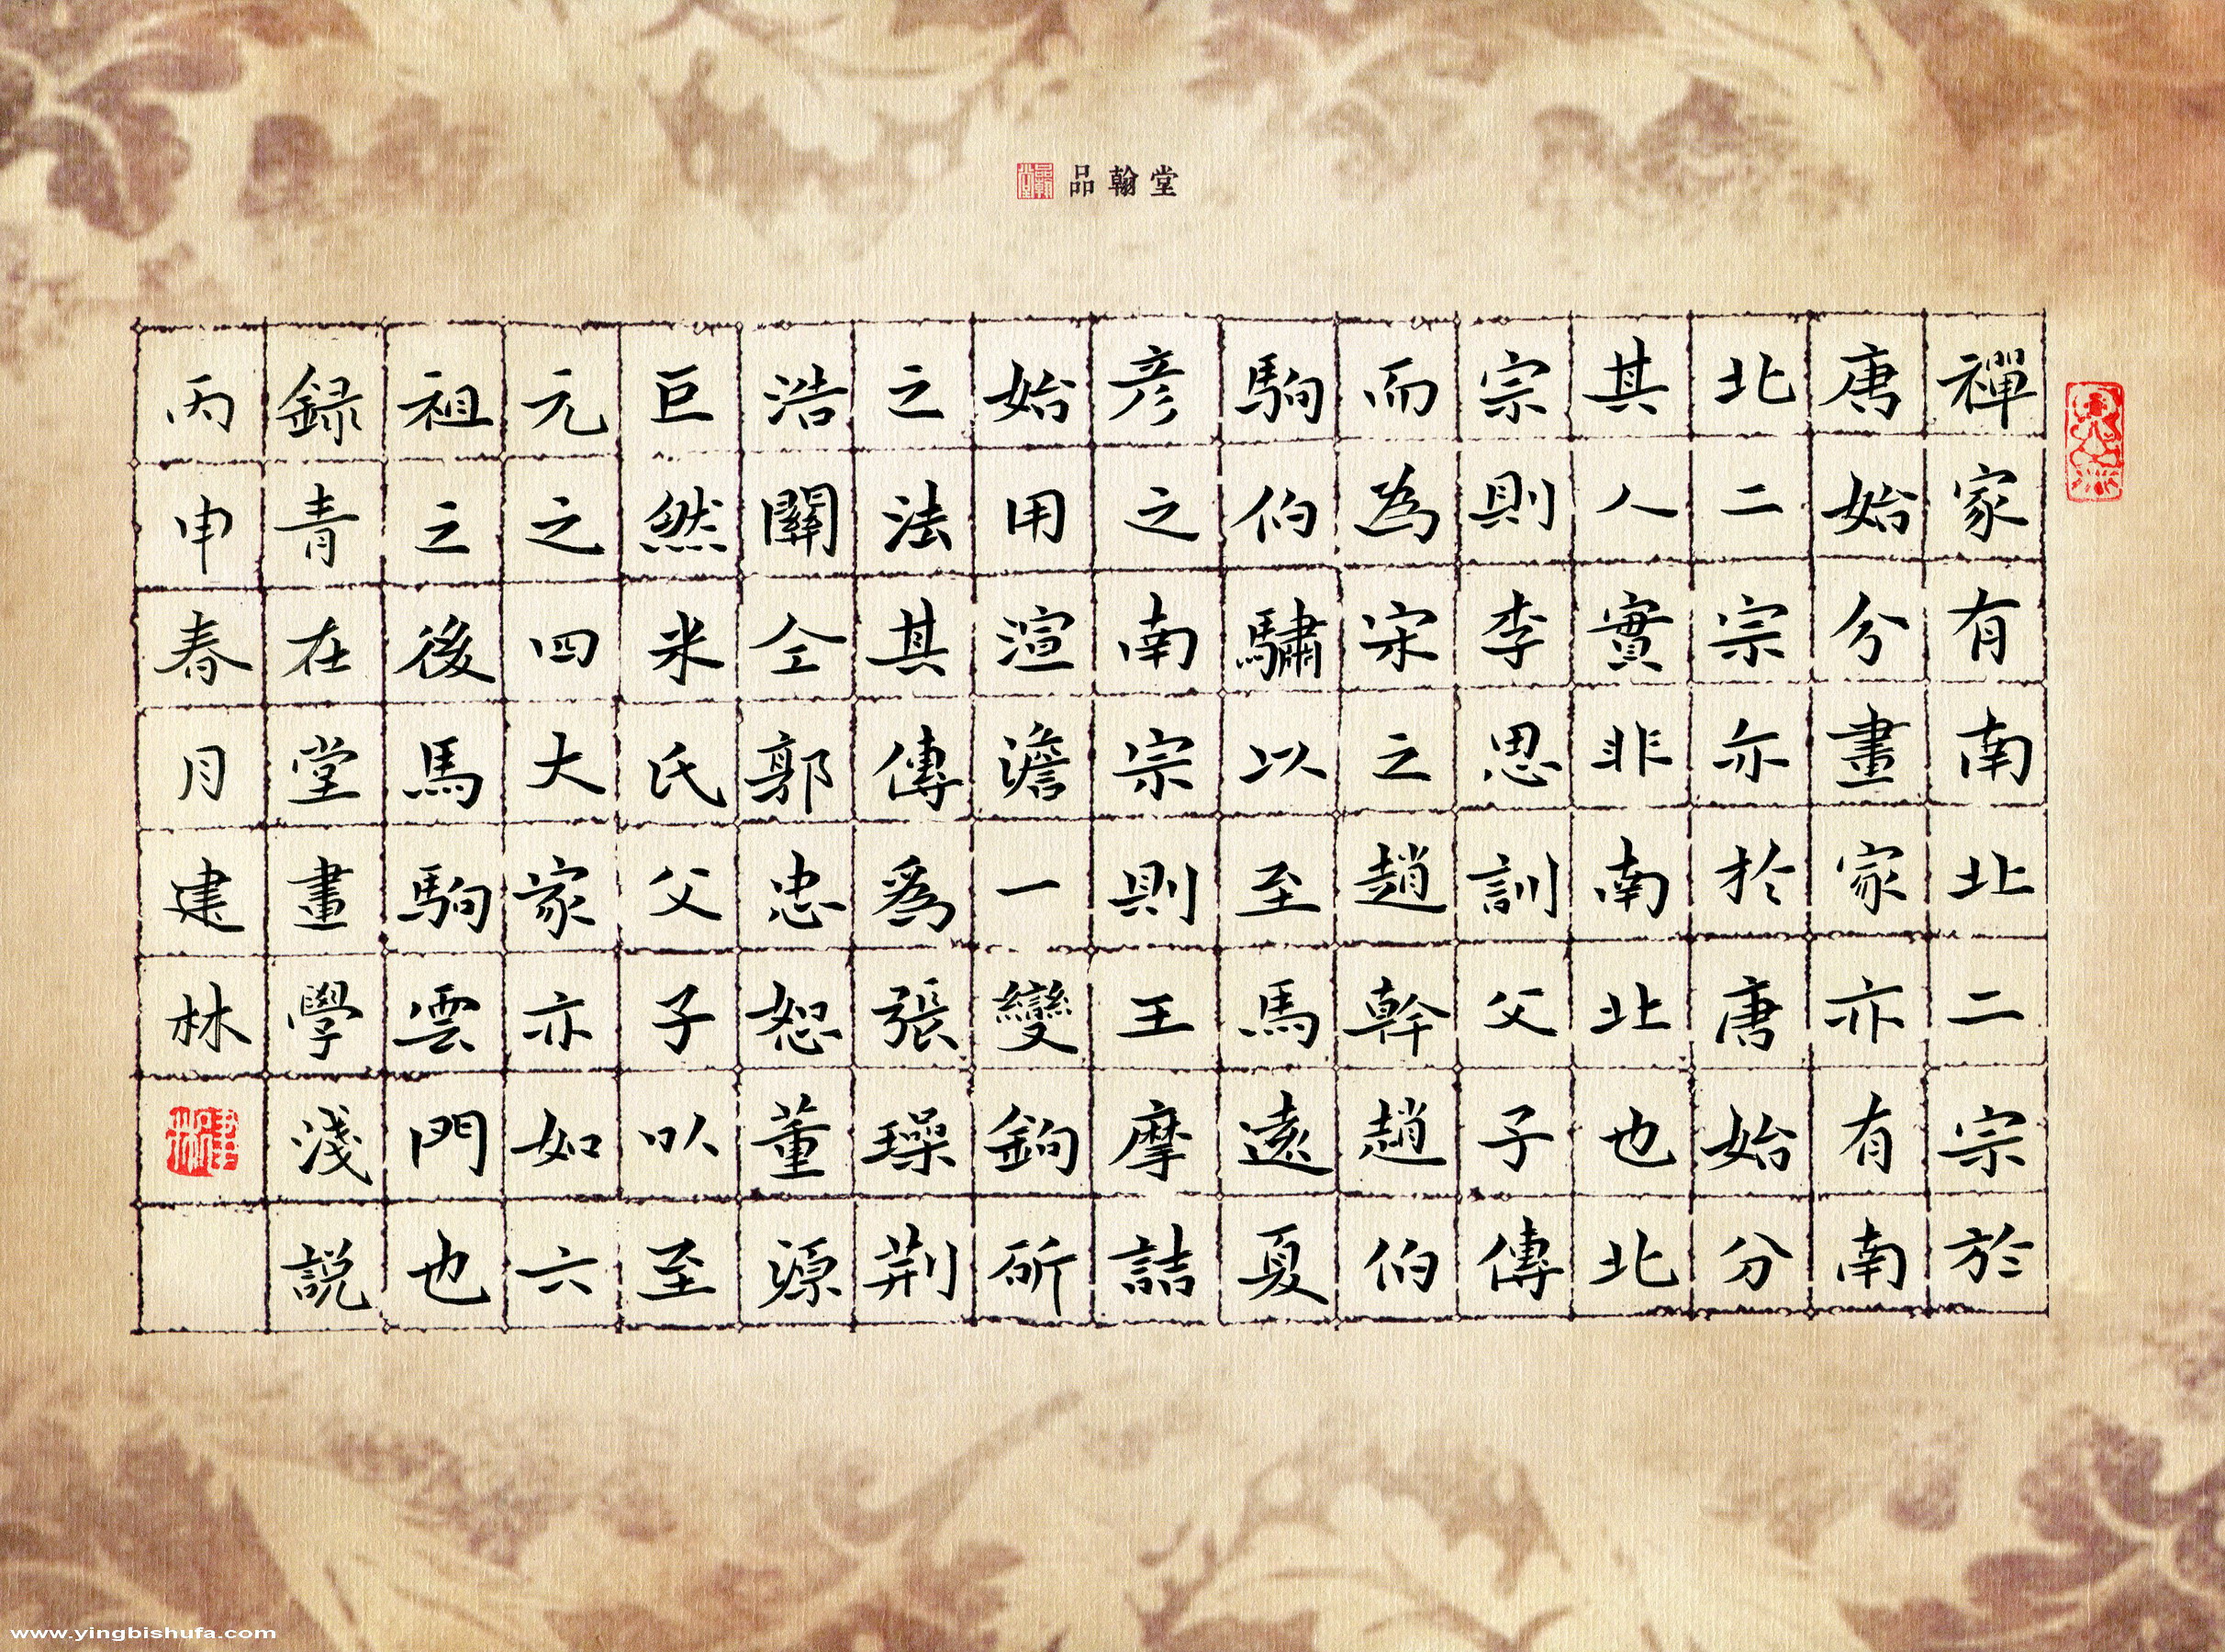 品翰堂
禪家有南北二宗於
唐始分畫家亦有南
北二宗亦於唐始分
其人實非南北也北
宗則李思訓父子傳
而為宋之趙幹趙伯
駒伯驌以至馬遠夏
彥之南宗則王摩詰
始用渲澹一變鉤斫
之法其傳爲張璪荆
浩關仝郭忠恕董源
巨然米氏父子以至
元之四大家亦如六
祖之後馬駒雲門也
録青在堂畫學淺説
丙申春月建林
www.yingbishufa.com